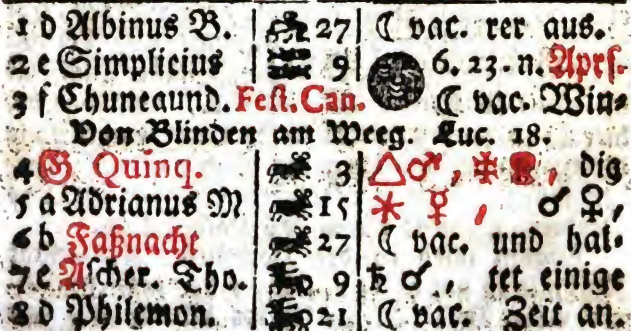 1 d Albinus B. 27 ☾ vac. rer aus.
2 e Simplicius 9 6. 23. n. Aprs.
3 f Chuneaund. Fest. Can. ☾ vac. Win=
Von Blinden am Weeg. Luc. 18.
4 G Quinq. 3 △ ♂, dig
5 a Adrianus M 15 ⚹ ☿, ♂ ♀,
6 b Faßnacht 27 ☾ vac. und hal=
7 c Ascher. Tho. 9 ♄ ☌, tet einige
8 d Philemon. 21 ☾ vac. Zeit an.